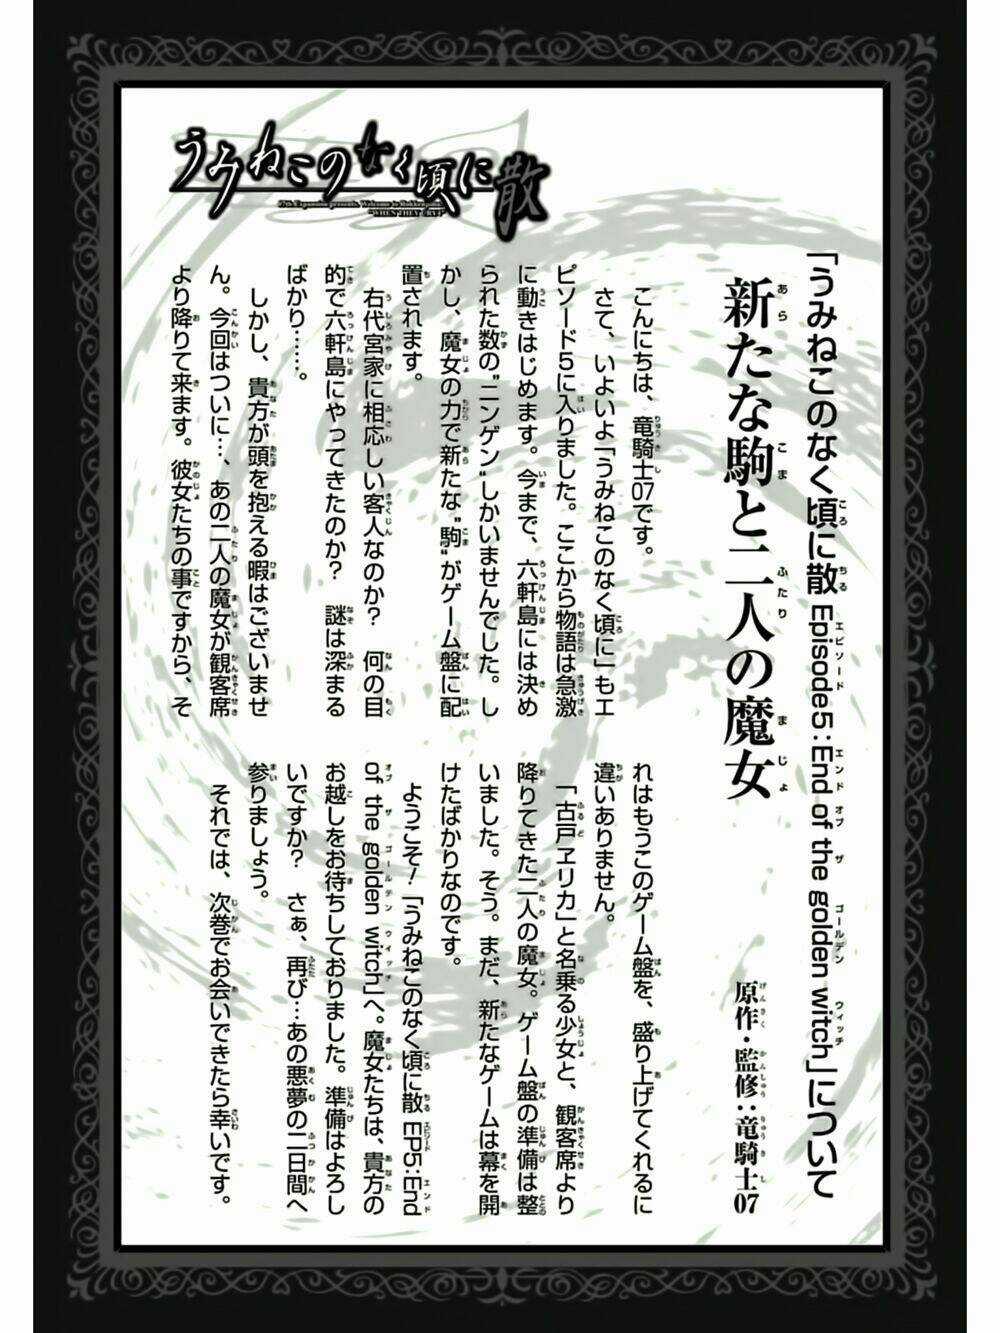 「うみねこのなく頃に散 Episode5:End of the golden witch」について
新たな駒と二人の魔女
原作・監修:竜騎士07
こんにちは、竜騎士07です。
さて、いよいよ「うみねこのなく頃に」もエ
ピソード5に入りました。ここから物語は急激
に動きはじめます。今まで、六軒島には決め
られた数の"ニンゲン"しかいませんでした。し
かし、魔女の力で新たな"駒"がゲーム盤に配
置されます。
右代宮家に相応しい客人なのか? 何の目
的で六軒島にやってきたのか? 謎は深まる
ばかり……。
しかし、貴方が頭を抱える暇はございませ
ん。今回はついに…、あの二人の魔女が観客席
より降りて来ます。彼女たちの事ですから、そ
れはもうこのゲーム盤を、盛り上げてくれるに
違いありません。
「古戸ヱリカ」と名乗る少女と、観客席より
降りてきた二人の魔女。ゲーム盤の準備は整
いました。そう。まだ、新たなゲームは幕を開
けたばかりなのです。
ようこそ!「うみねこのなく頃に散 EP5:End
of the golden witch」へ。魔女たちは、貴方の
お越しをお待ちしておりました。準備はよろし
いですか? さぁ、再び…あの悪夢の二日間へ
参りましょう。
それでは、次巻でお会いできたら幸いです。
うみねこのなく頃に散
07th Expansion presents. Welcome to Rokkenjima.
"WHEN THEY CRY4"